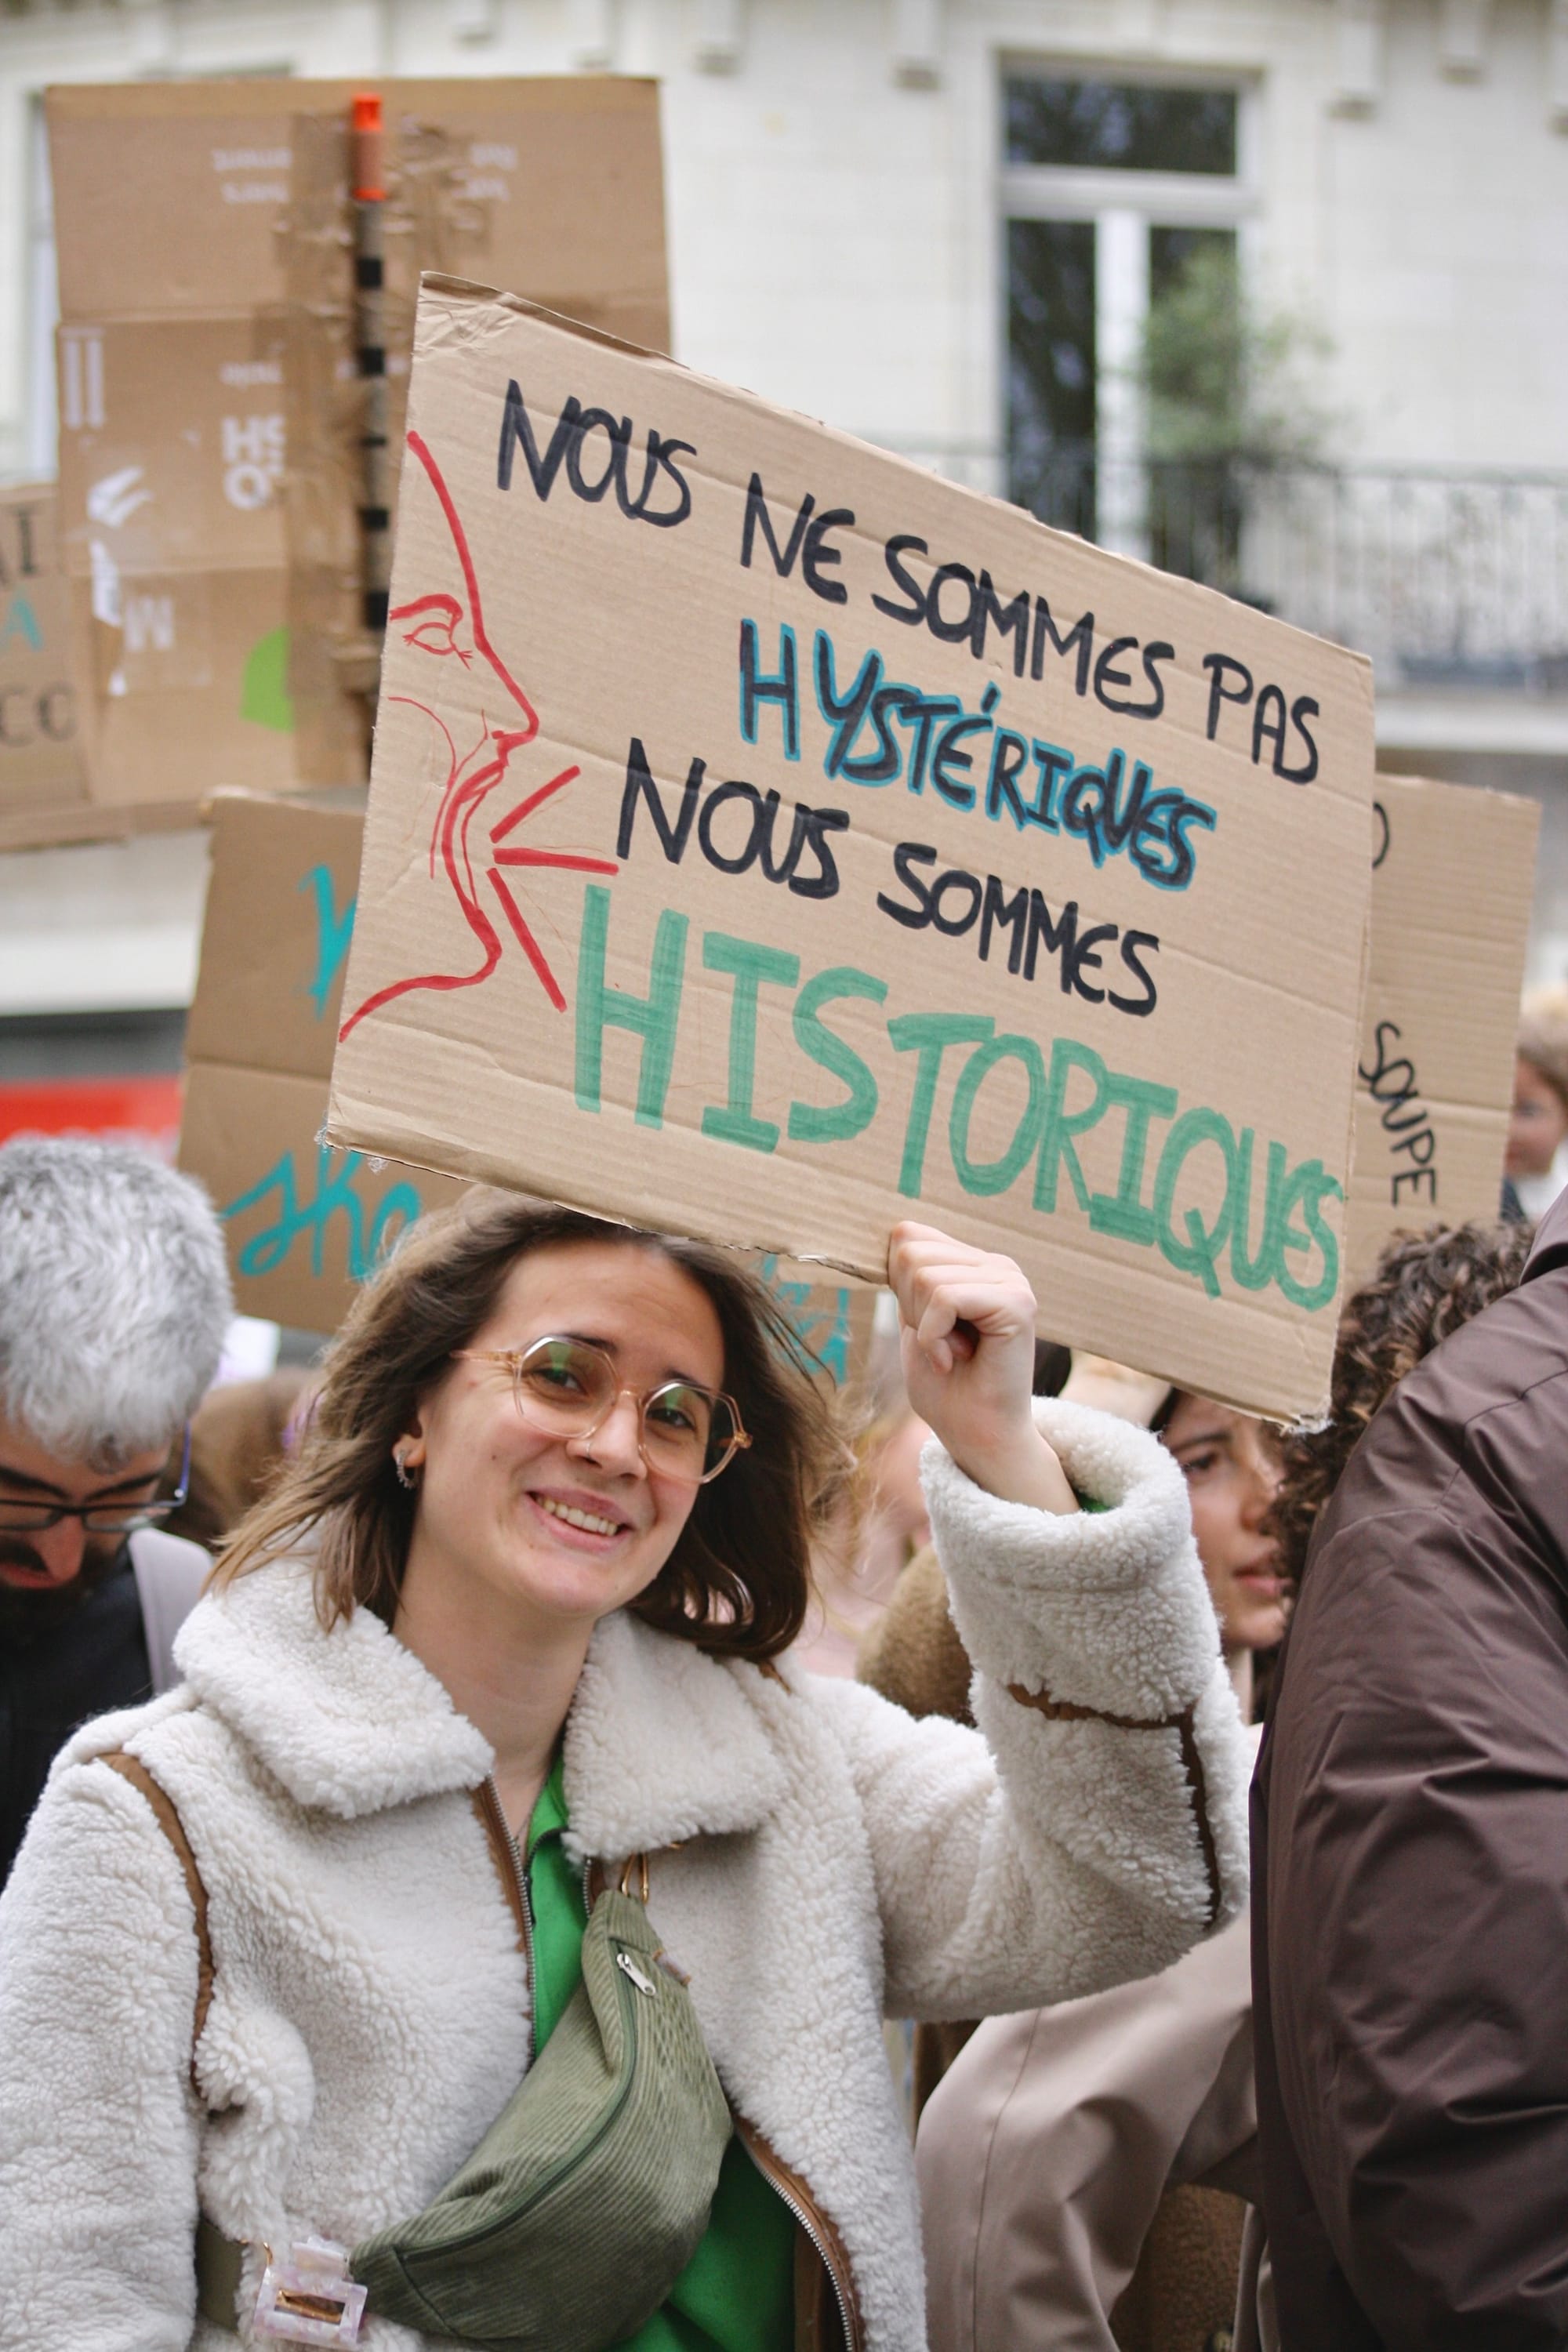 NOUS NE SOMMES PAS
HYSTÉRIQUES
NOUS SOMMES
HISTORIQUES
SOUPE